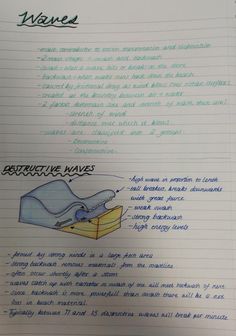 Waves
- major contributor to marine transportation and deposition
- 2 main stages = swash and backwash
- swash - when a wave rolls or breaks on the shore
- backwash - when water runs back down the beach
- caused by frictional drag as wind blows over ocean surfaces
- created at the boundary between air + water
- 2 factors determine size and amount of waves:
- strength of wind
- distance over which it blows
- waves are classified into 2 groups
- Destructive
- Constructive
DESTRUCTIVE WAVES
- high wave in proportion to length
- tall breakers, breaks downwards
with great force
- weak swash
- strong backwash
- high energy levels
- formed by strong winds in a large fetch area
- strong backwash removes materials from the coastline
- often occur shortly after a storm
- waves catch up with each other as wave will meet backwash of next
- since backwash is more powerful than swash there will be a net
loss in beach material
- Typically between 11 and 15 destructive waves will break per minute